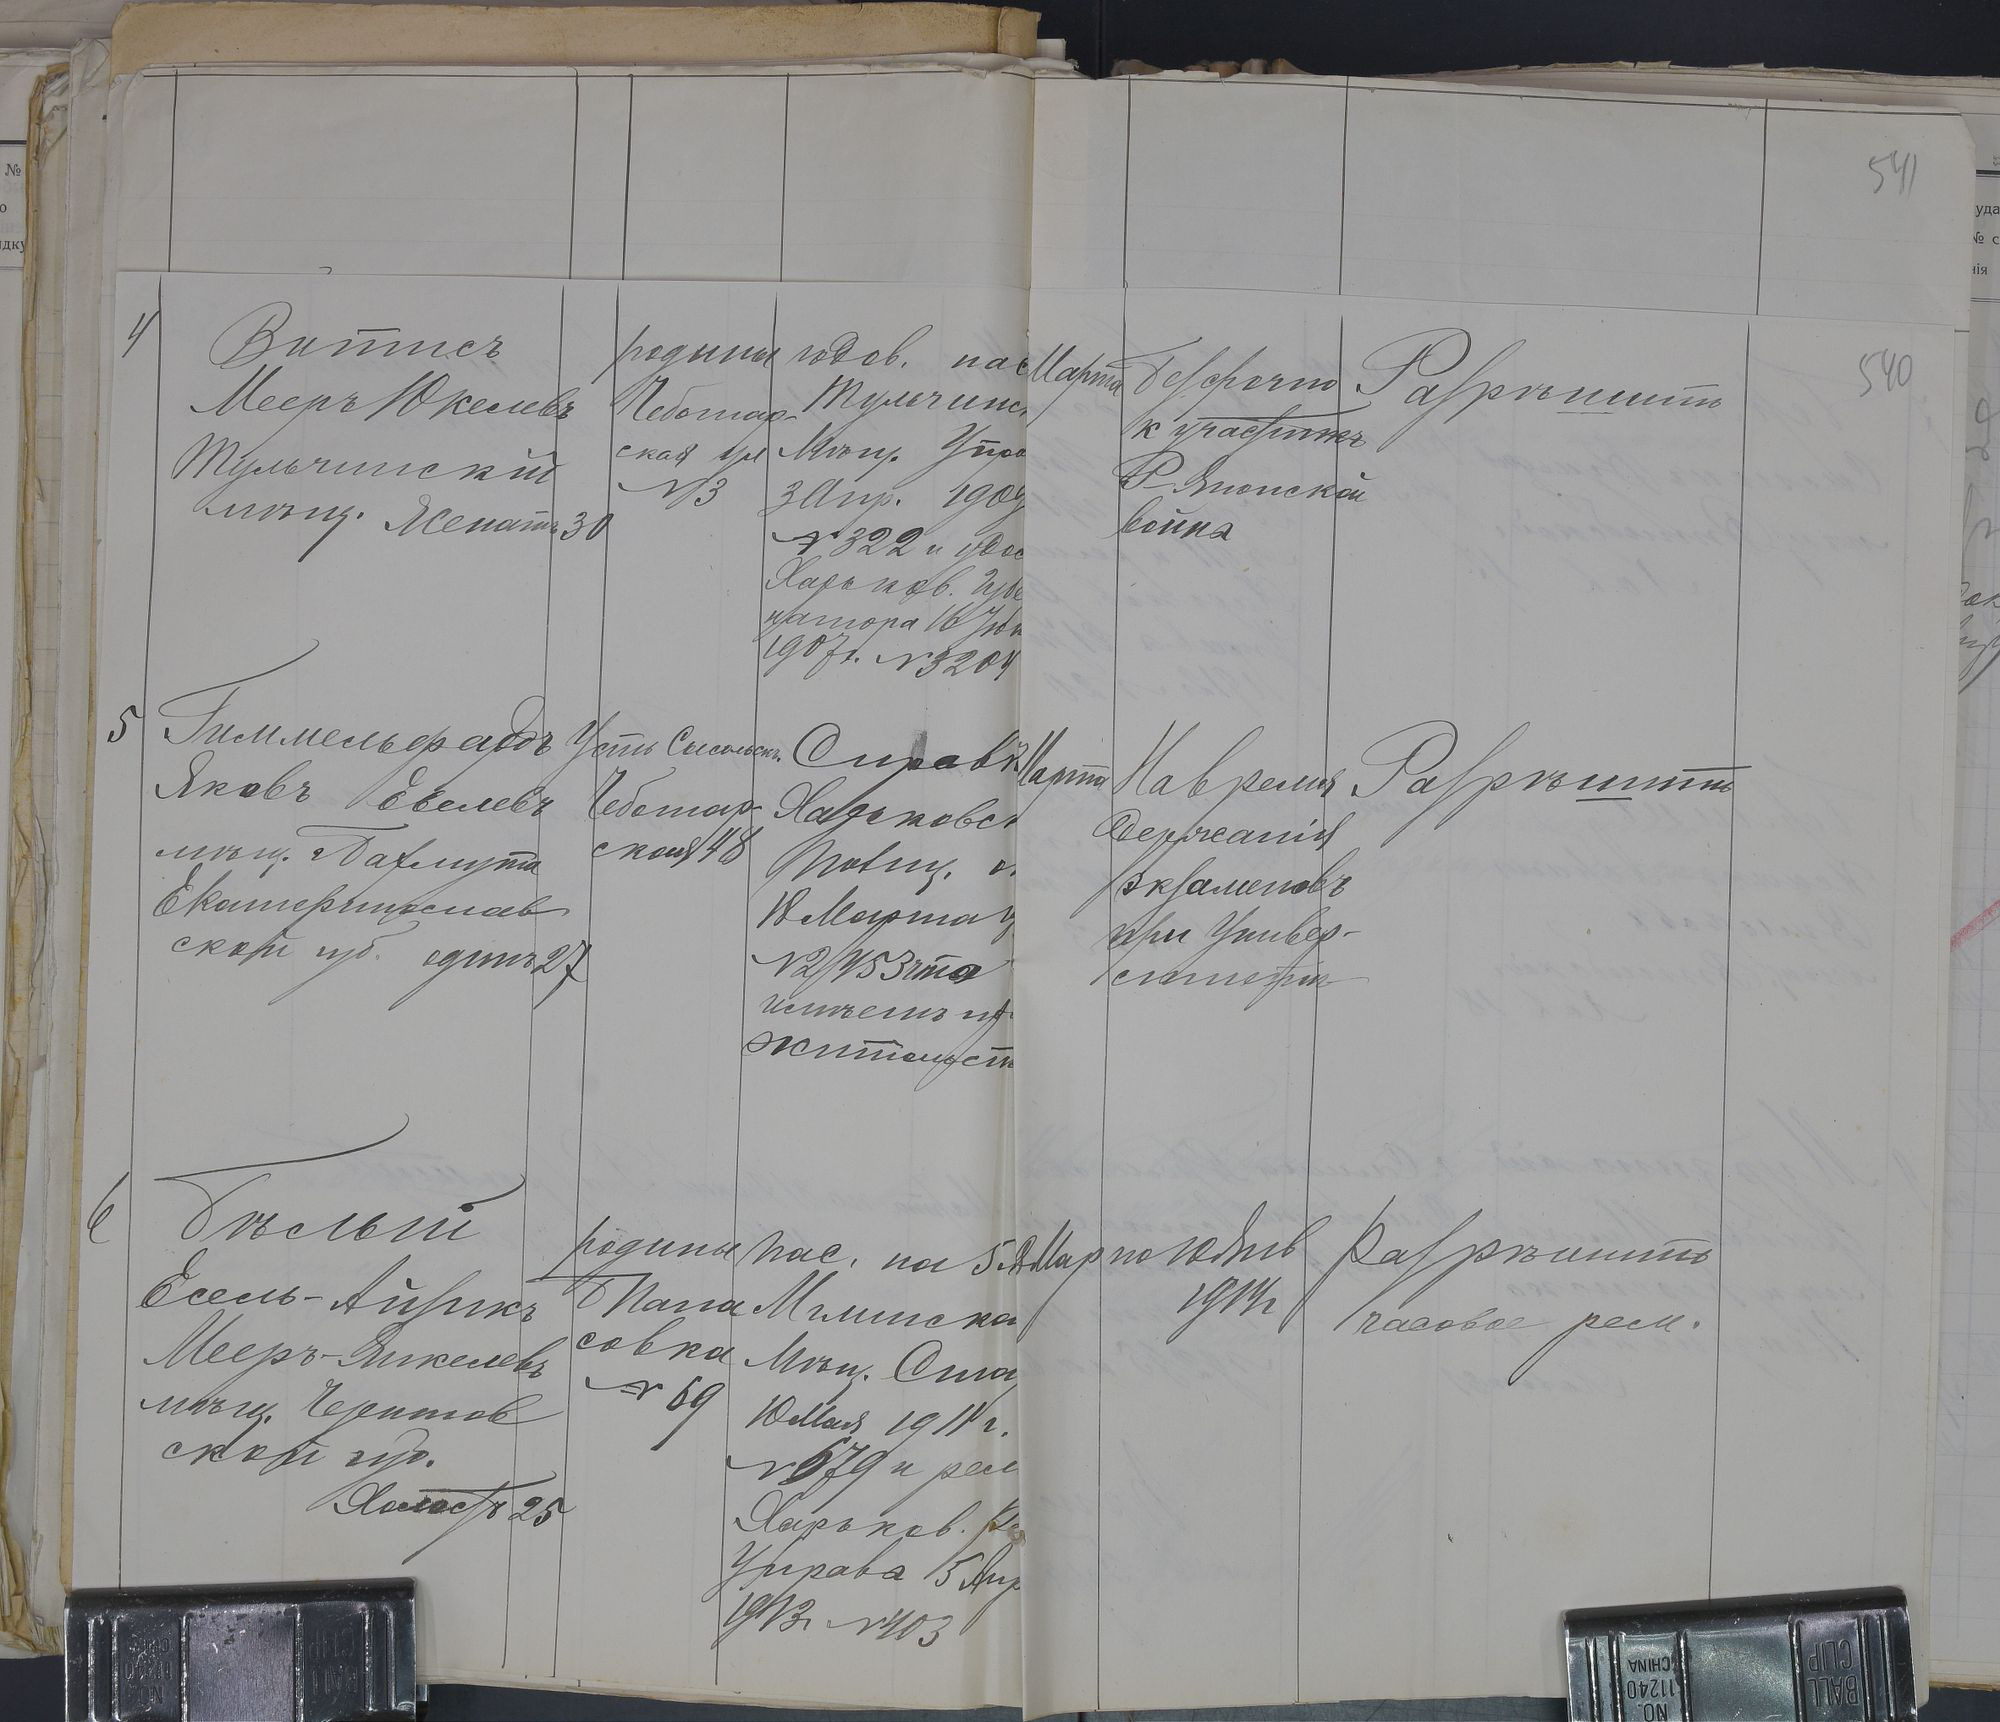 541
540
4
Витисъ
Мееръ Юкелевъ
Тульчинскій
мѣщ. Женатъ 30
родины
Чеботар-
ская ул
№3
годов. пас
Тульчинс
Мѣщ. Упра
3 Апр. 1909
№ 322 и удос
Харьков. Губе
натора 16 Іюн
1907г. №3204
Марта
Безсрочно
к участникъ
Р. Японской
войны
Разрѣшить
5
Гиммельфарбъ
Яковъ Евелевъ
мѣщ. г Бахмута
Екатеринослав
ской губ. один 27
Усть Сысольск.
Чеботар-
ская 48
Справк
Харьковск
Полиц. о
10 Марта
№2453 что
имѣетъ пр
жительст
Марта
На время
держанія
экзаменовъ
при Универ-
ситетѣ
Разрѣшить
6
Бѣлый
Есель-Айзикъ
Мееръ-Янкелевъ
мѣщ. Чернигов
ской губ.
Холостъ 25
родины
Б Пана
совка
№ 69
пас. на 5 л
Мглинска
Мѣщ. Ста
10 Мая 1911г.
№ 679 и рем
Харьков. Ре
Управа 15 Апр
1913г №403
Мар
по 10 Янв
1914г
Разрѣшить
часовое рем.
NO. 11240
CHINA
BALL
CLIP